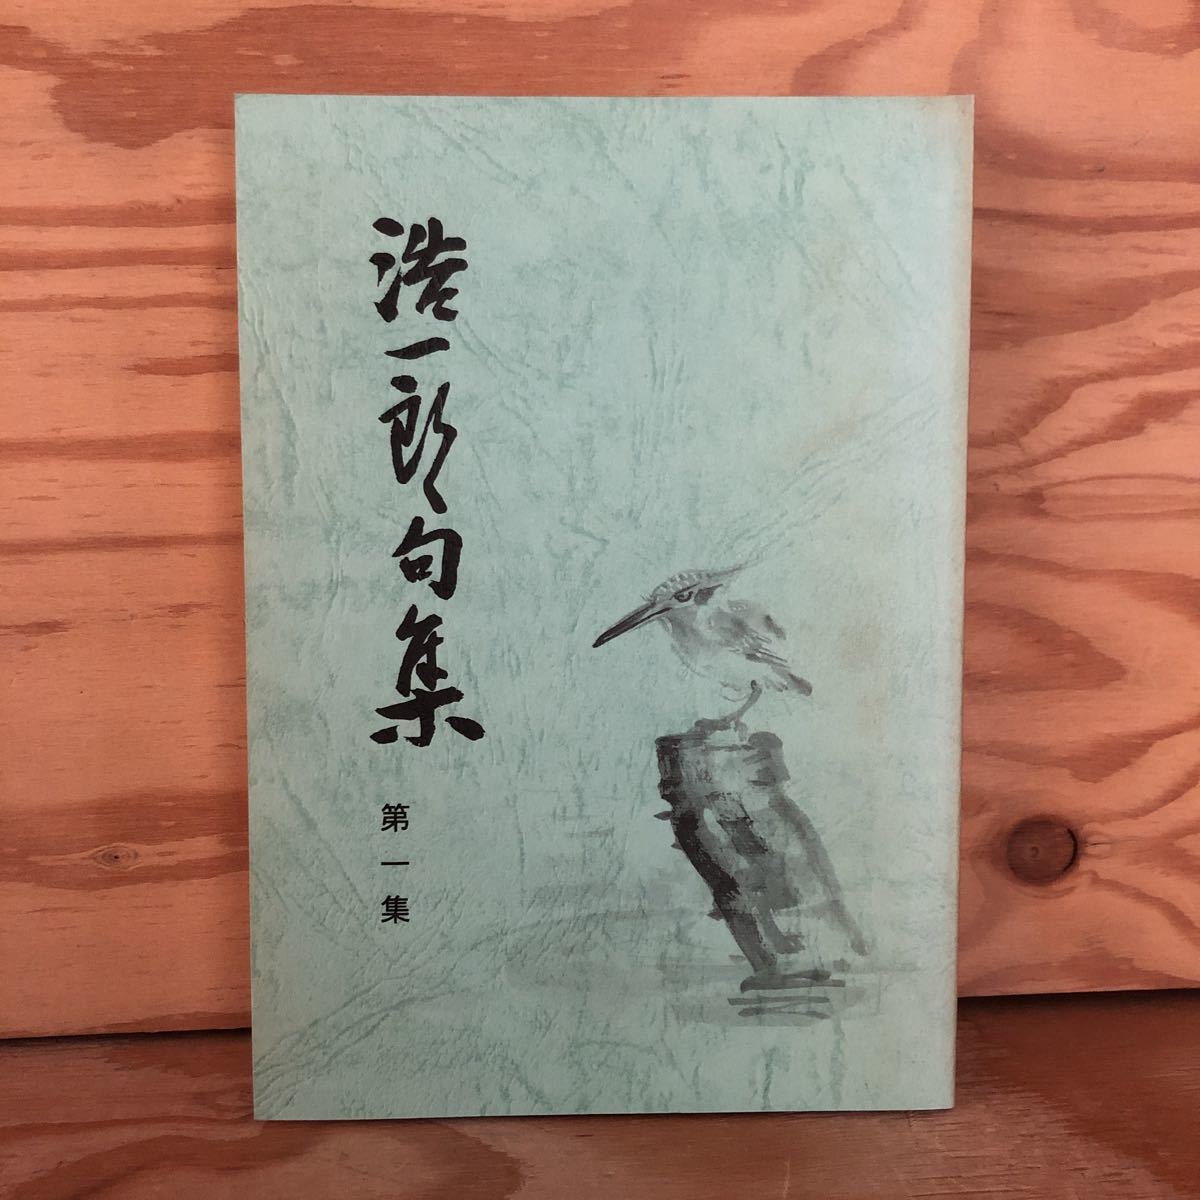 浩一郎句集
第一集